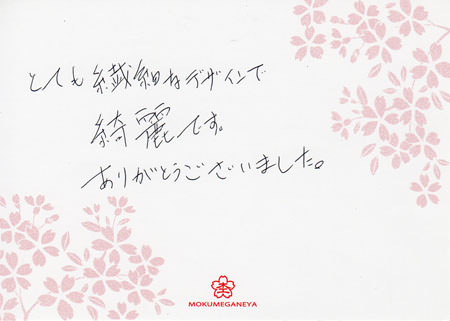 とても繊細なデザインで
綺麗です。
ありがとうございました。
杢
MOKUMEGANEYA